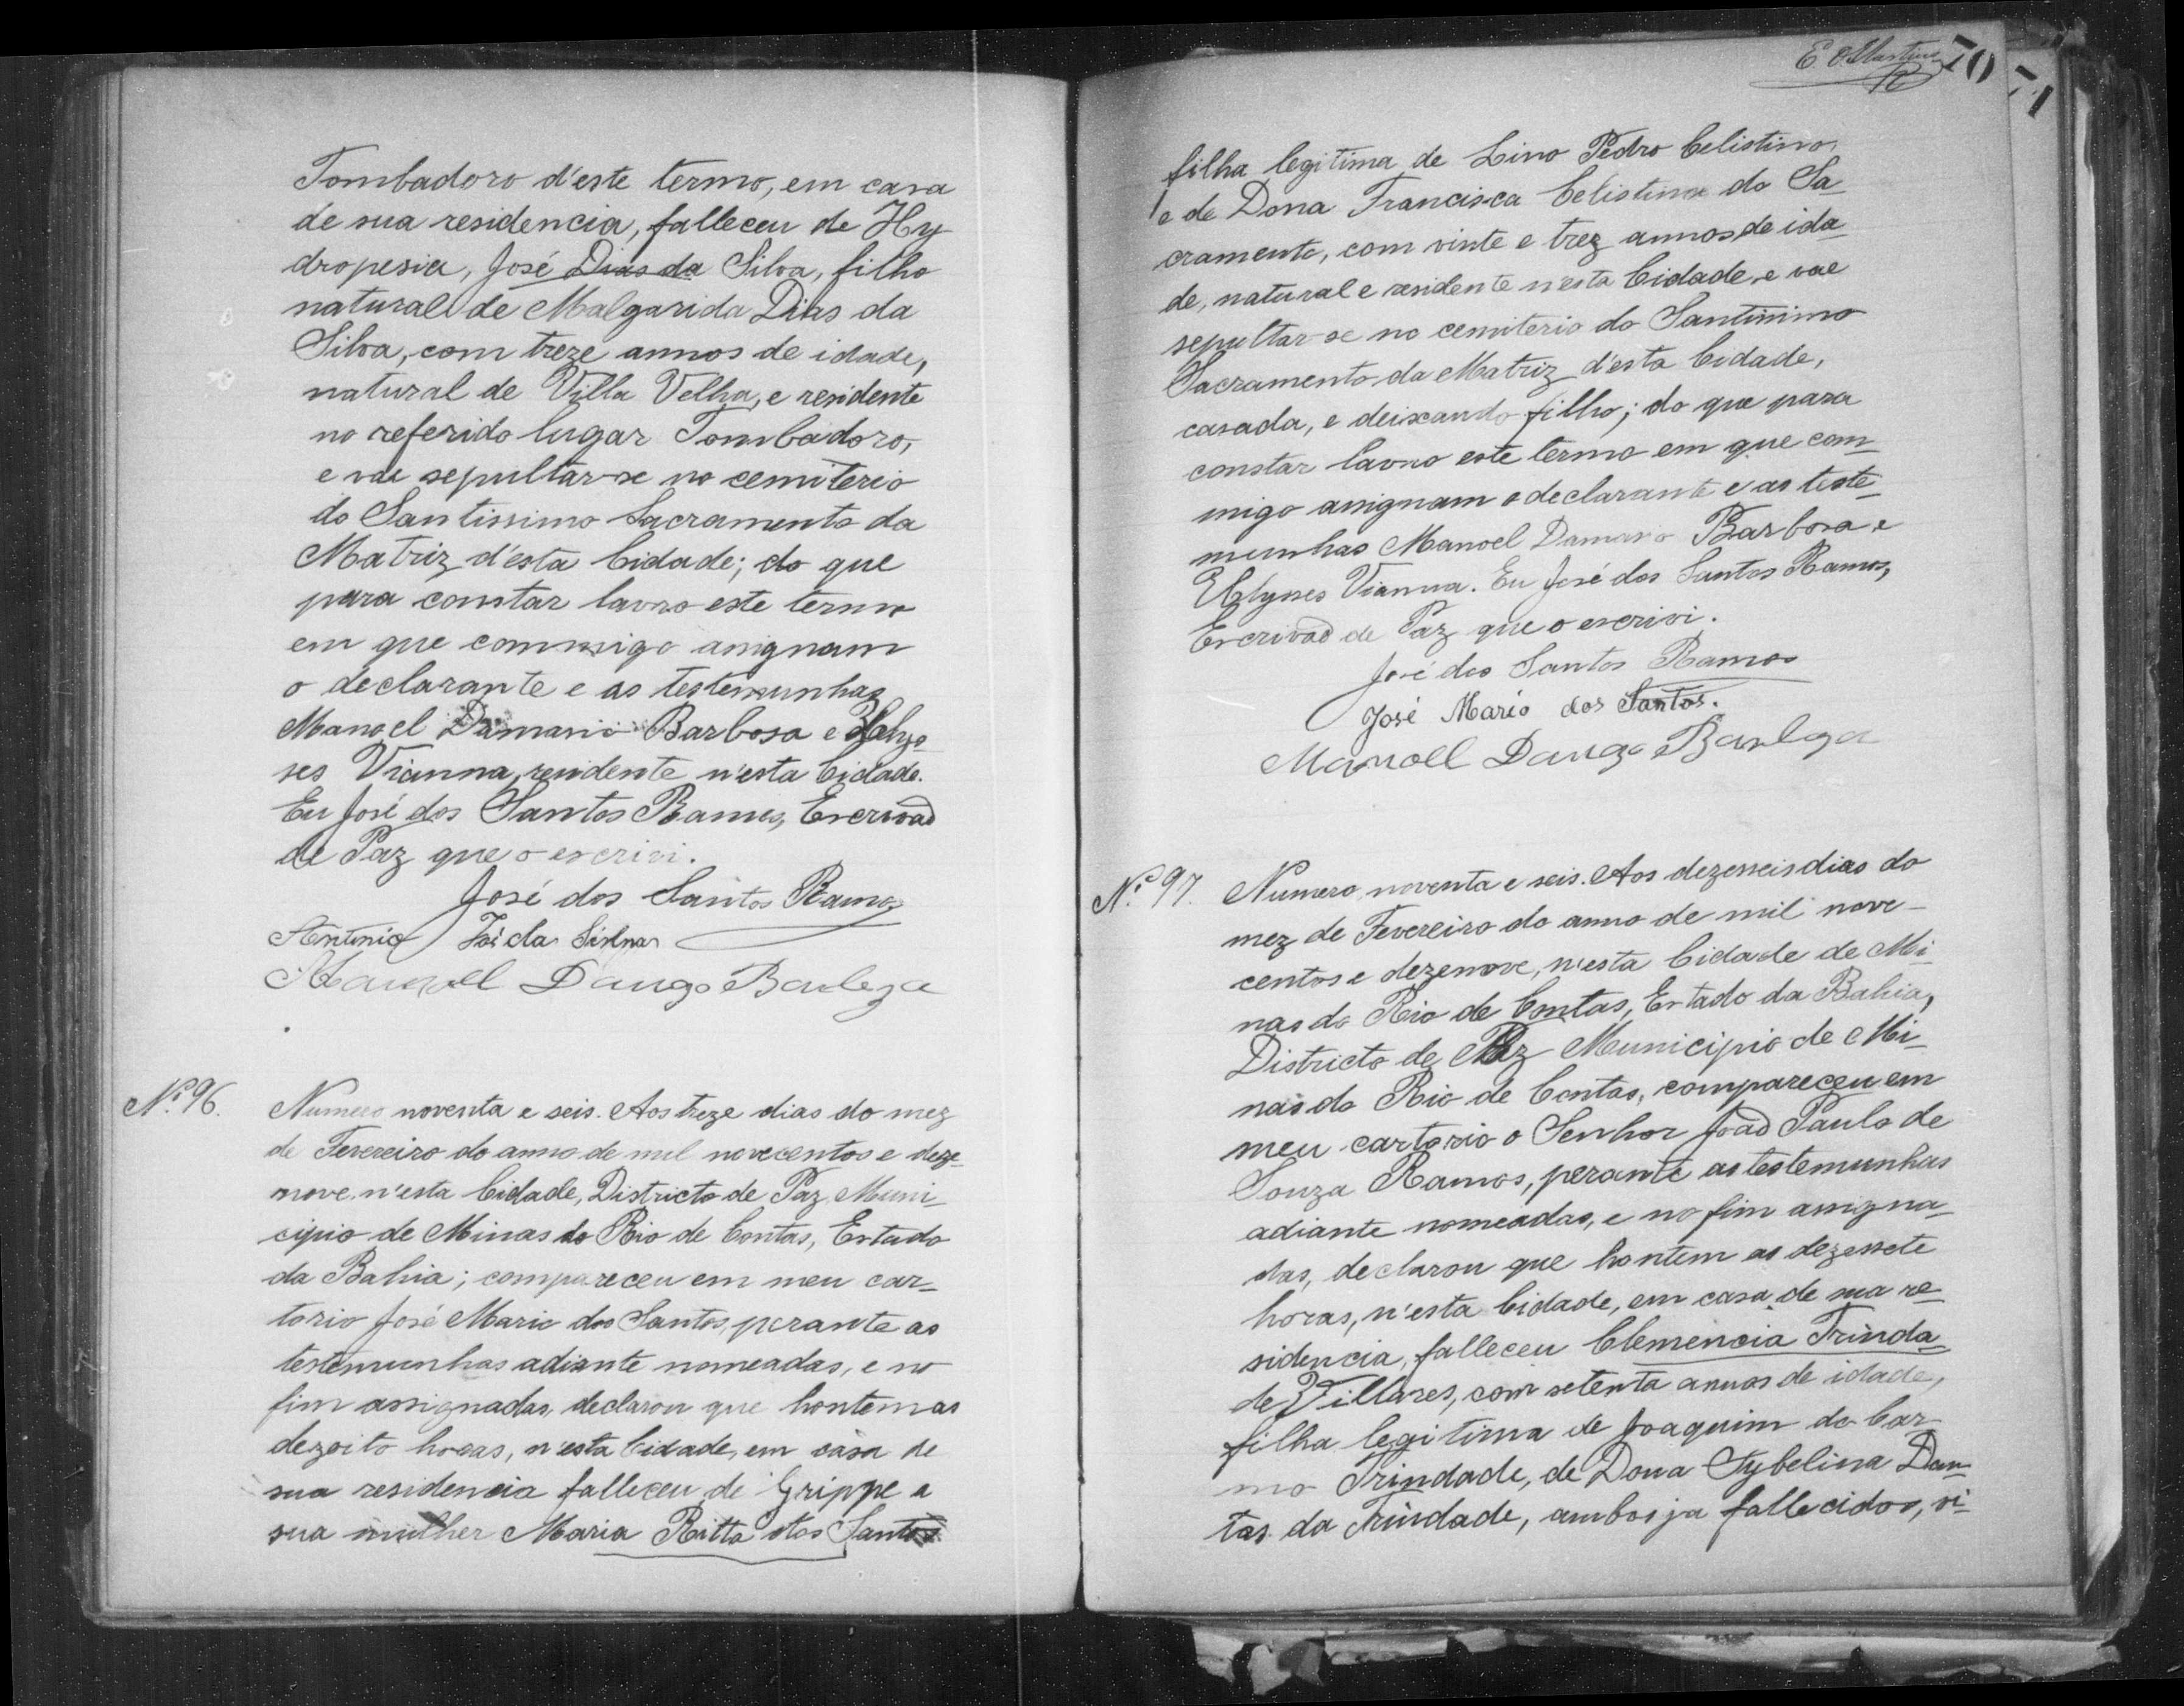 Tombadoro d'este termo, em casa
de sua residencia, falleceu de Hy
dropesia, José Dias da Silva, filho
natural de Malgarida Dias da
Silva, com treze annos de idade,
natural de Villa Velha, e residente
no referido lugar Tombadoro,
e vae sepultar-se no cemiterio
do Santissimo Sacramento da
Matriz d'esta Cidade; do que
para constar lavro este termo
em que commigo assignam
o declarante e as testemunhas
Manoel Damasio Barbosa e Ulys-
ses Vianna, residente n'esta Cidade.
Eu José dos Santos Ramos, Escrivaõ
de Paz que o escrivi.
José dos Santos Ramos
Antonio da Silva
Manoel Barboza
Nº 96. Numero noventa e seis. Aos treze dias do mez
de Fevereiro do anno de mil novecentos e deze-
nove, n'esta Cidade, Districto de Paz, Muni-
cipio de Minas do Rio de Contas, Estado
da Bahia; compareceu em meu car-
torio José Mario dos Santos, perante as
testemunhas adiante nomeadas, e no
fim assignadas, declarou que hontem as
dezoito horas, n'esta Cidade, em casa de
sua residencia falleceu de Grippe a
sua mulher Maria Ritta dos Santos
E. O. Martins
70 71
filha legitima de Lino Pedro Celistino,
e de Dona Francisca Celistina do Sa
cramento, com vinte e trez annos de ida-
de, natural e residente n'esta Cidade, e vae
sepultar-se no cemiterio do Santissimo
Sacramento da Matriz d'esta Cidade,
casada, e deixando filho; do que para
constar lavro este termo em que com-
migo assignam o declarante e as teste-
munhas Manoel Damasio Barbosa e
Ulysses Vianna. Eu José dos Santos Ramos,
Escrivaõ de Paz que o escrivi.
José dos Santos Ramos
José Mario dos Santos.
Manoell Barboza
Nº 97. Numero noventa e seis. Aos dezesseis dias do
mez de Fevereiro do anno de mil nove-
centos e dezenove, n'esta Cidade de Mi-
nas do Rio de Contas, Estado da Bahia,
Districto de Paz Municipio de Mi-
nas do Rio de Contas, compareceu em
meu cartorio o Senhor Joaõ Paulo de
Souza Ramos, perante as testemunhas
adiante nomeadas, e no fim assigna-
das, declarou que hontem as dezessete
horas, n'esta Cidade, em casa de sua re-
sidencia, falleceu Clemencia Trinda-
de Villares, com setenta annos de idade,
filha legitima de Joaquim do Car-
mo Trindade, de Dona Sybelina Dan-
tas da Trindade, ambos ja fallecidos, vi-